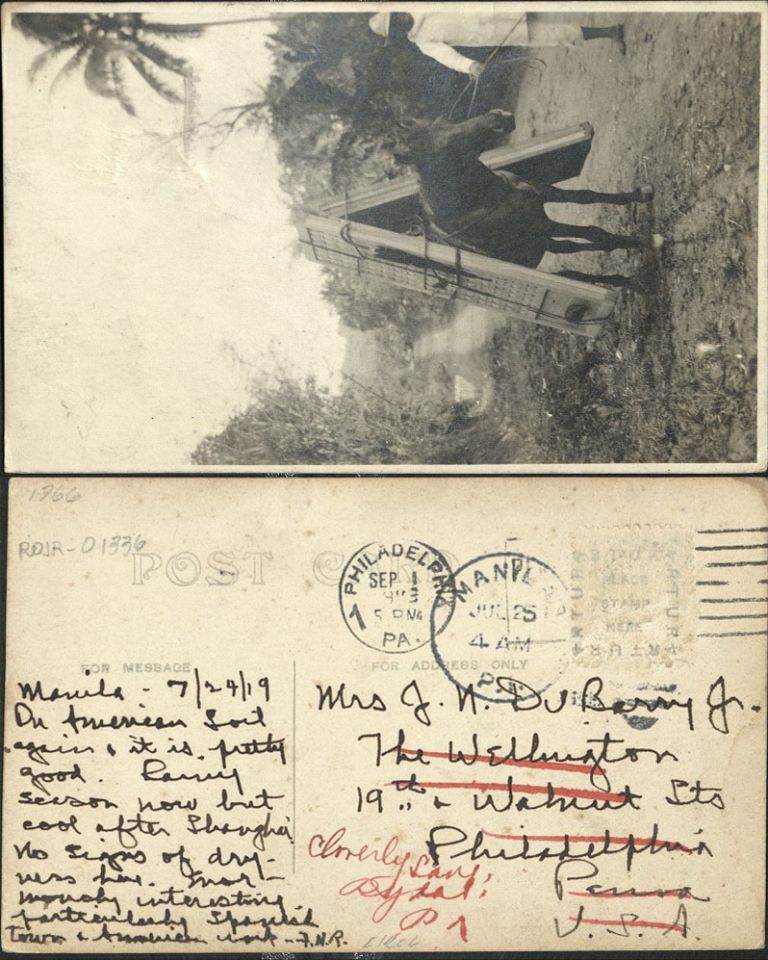 1766
RDJR-01336
POST CARD
FOR MESSAGE
FOR ADDRESS ONLY
PHILADELPHIA
SEP 1
5 PM
1
PA.
MANILA
JUL 25
4 AM
P.I.
ARTURA
PLACE
STAMP
HERE
ARTURA
ARTURA
Manila - 7/24/19
On American Soil
again & it is pretty
good. Rainy
season now but
cool after Shanghai
No signs of dry-
ness here.
interesting
particularly Spanish
town & American work -
Mrs J. N. Du Barry Jr.
The Wellington
19th & Walnut Sts
Philadelphia
Penna
U.S.A.
Cloverly Lane,
Rydal,
Pa